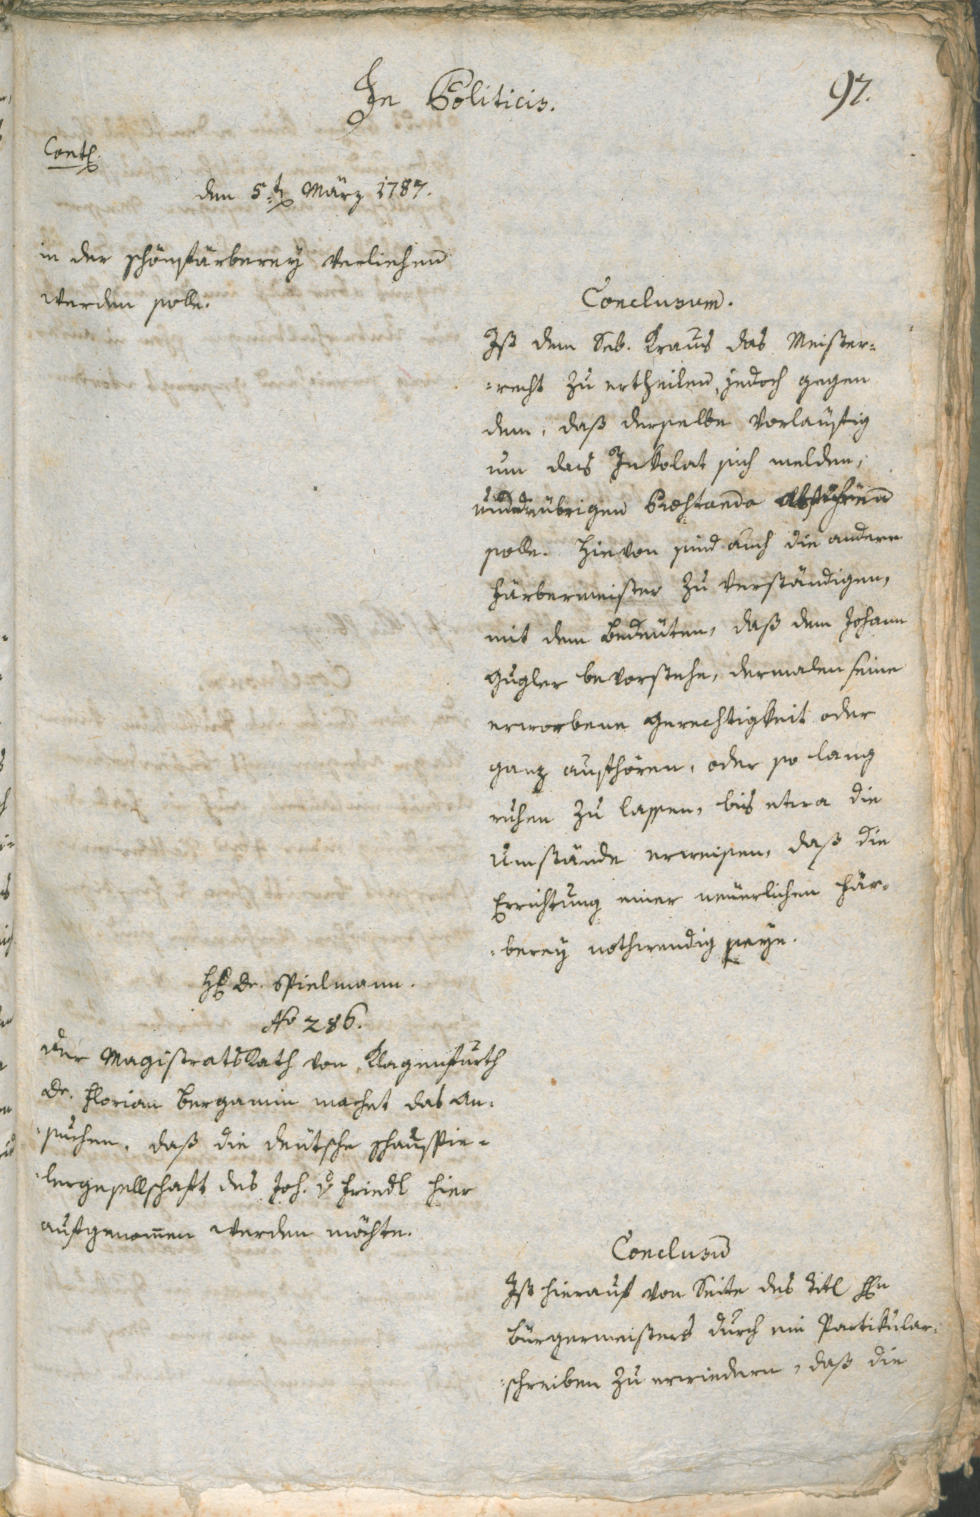 In Politicis.
97.
Cont.
den 5.t. März 1787.
in der schönfärberey verliehen
werden solle.
Conclusum.
Ist dem Seb. Kraus das Meister=
=recht zu ertheilen, jedoch gegen
dem, daß derselbe vorläufig
um das Inkolat sich melden,
und übrigen Praestanda abführen
solle. Hievon sind auch die andern
Färbermeister zu verständigen,
mit dem Bedeuten, daß dem Johann
Gugler bevorstehe, dermalen seine
erworbene Gerechtigkeit oder
ganz aufhören, oder so lang
ruhen zu lassen, bis etwa die
Umstände erweisen, daß die
Errichtung einer neuerlichen Fär=
=berey nothwendig seye.
H. Dr. Spielmann.
No 286.
Der Magistratsrath von Klagenfurth
Dr. Florian Bergamin machet das An=
=suchen, daß die deutsche Schauspie=
=lergesellschaft des Joh. Friedl hier
aufgenom̅en werden möchte.
Conclusum̅
Ist hierauf von Seite des Titl Hn
Bürgermeisters durch ein Partikular=
=schreiben zu erwiedern, daß die